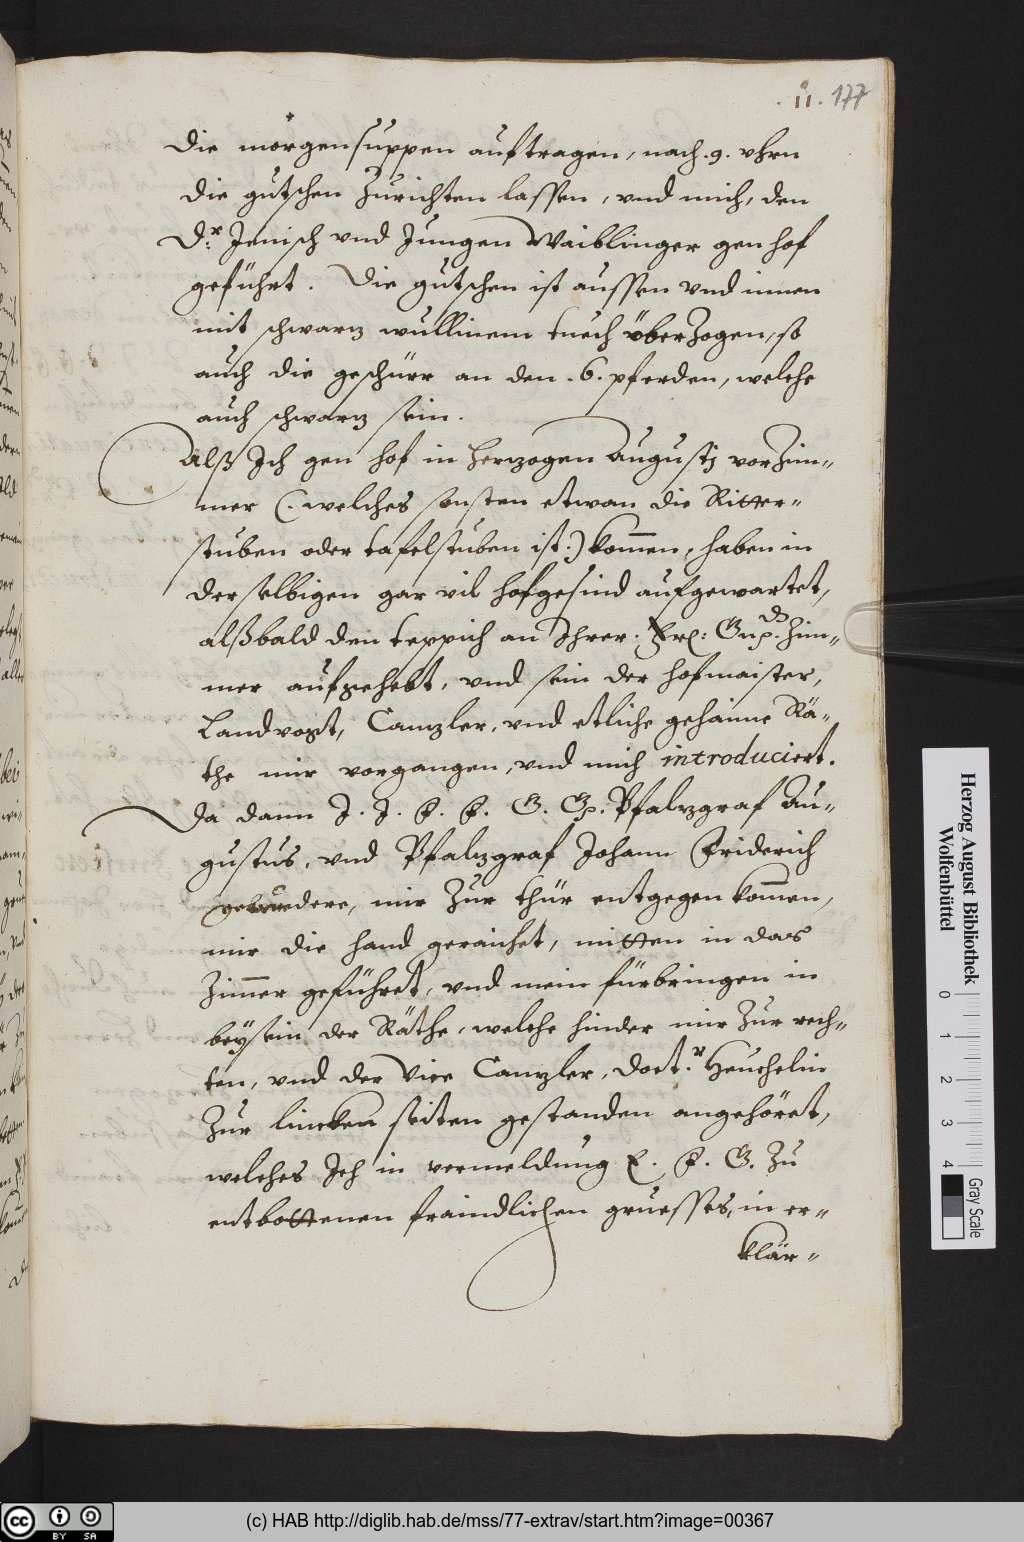 . 11. 177
Die morgensuppen auftragen, nach .9. vhrn
die gutschen Zurichten lassen, vnd mich, den
D:r Jenisch vnd Jungen Waiblinger gen hof
geführt. Die gutschen ist aussen vnd innen
mit schwarz wullinem tuech überZogen, so
auch die geschürr an den .6. pferden, welche
auch schwarz sein.
Alß Ich gen hof in Herzogen Augustj vorZim=
mer (. welches sonsten etwan die Ritter=
stuben oder tafelstuben ist.) kom̄en, haben in
derselbigen gar vil hofgesind aufgewartet,
alßbald den teppich an Ihrer. Gnd. Zim=
mer aufgehebt, vnd sein der hofmaister,
Landvogt, Canzler, vnd etliche gehaime Rä=
the mir vorgangen, vnd mich introduciert.
Da dann J. J. F. F. G. G. Pfalzgraf Au=
gustus, vnd Pfalzgraf Johann Friderich
gebruedere, mir Zur thür entgegen kom̄en,
mir die hand geraichet, mitten in das
Zim̄er geführet, vnd mein fürbringen in
beysein der Räthe, welche hinder mir Zur rech=
ten, vnd der Vice Canzler, doct.r Heuchelin
Zur lincken seiten gestanden angehöret,
welches Ich in vermeldung E. F. G. Zu
entbottenen fraindlichen gruesses, in er=
klär=
Herzog August Bibliothek
Wolfenbüttel
0 1 2 3 4
Gray Scale
cc BY SA
(c) HAB http://diglib.hab.de/mss/77-extrav/start.htm?image=00367